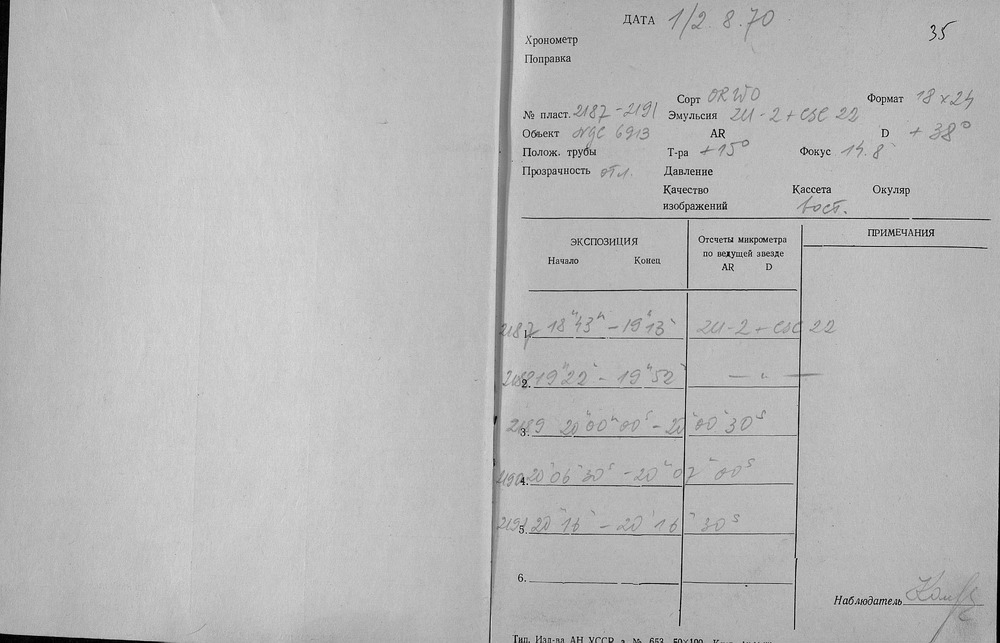 ДАТА 1/2. 8. 70
35
Хронометр
Поправка
Сорт ORWO Формат 18×24
№ пласт. 2187-2191 Эмульсия ZU-2+ CSC 22
Объект NGC 6913 AR D +38°
Полож. трубы Т-ра +15° Фокус 14.8
Прозрачность отл. Давление
Качество изображений Кассета вост. Окуляр
ЭКСПОЗИЦИЯ
Начало Конец
Отсчеты микрометра
по ведущей звезде
AR D
ПРИМЕЧАНИЯ
2187 1. 18ʰ43ᵐ - 19ʰ13ᵐ ZU-2 + CSC 22
2188 2. 19ʰ22ᵐ - 19ʰ52ᵐ — " —
2189 3. 20ʰ00ᵐ00ˢ - 20ʰ00ᵐ30ˢ
2190 4. 20ʰ06ᵐ30ˢ - 20ʰ07ᵐ00ˢ
2191 5. 20ʰ16ᵐ - 20ʰ16ᵐ30ˢ
6.
Наблюдатель
Тип. Изд-ва АН УССР, з. № 653